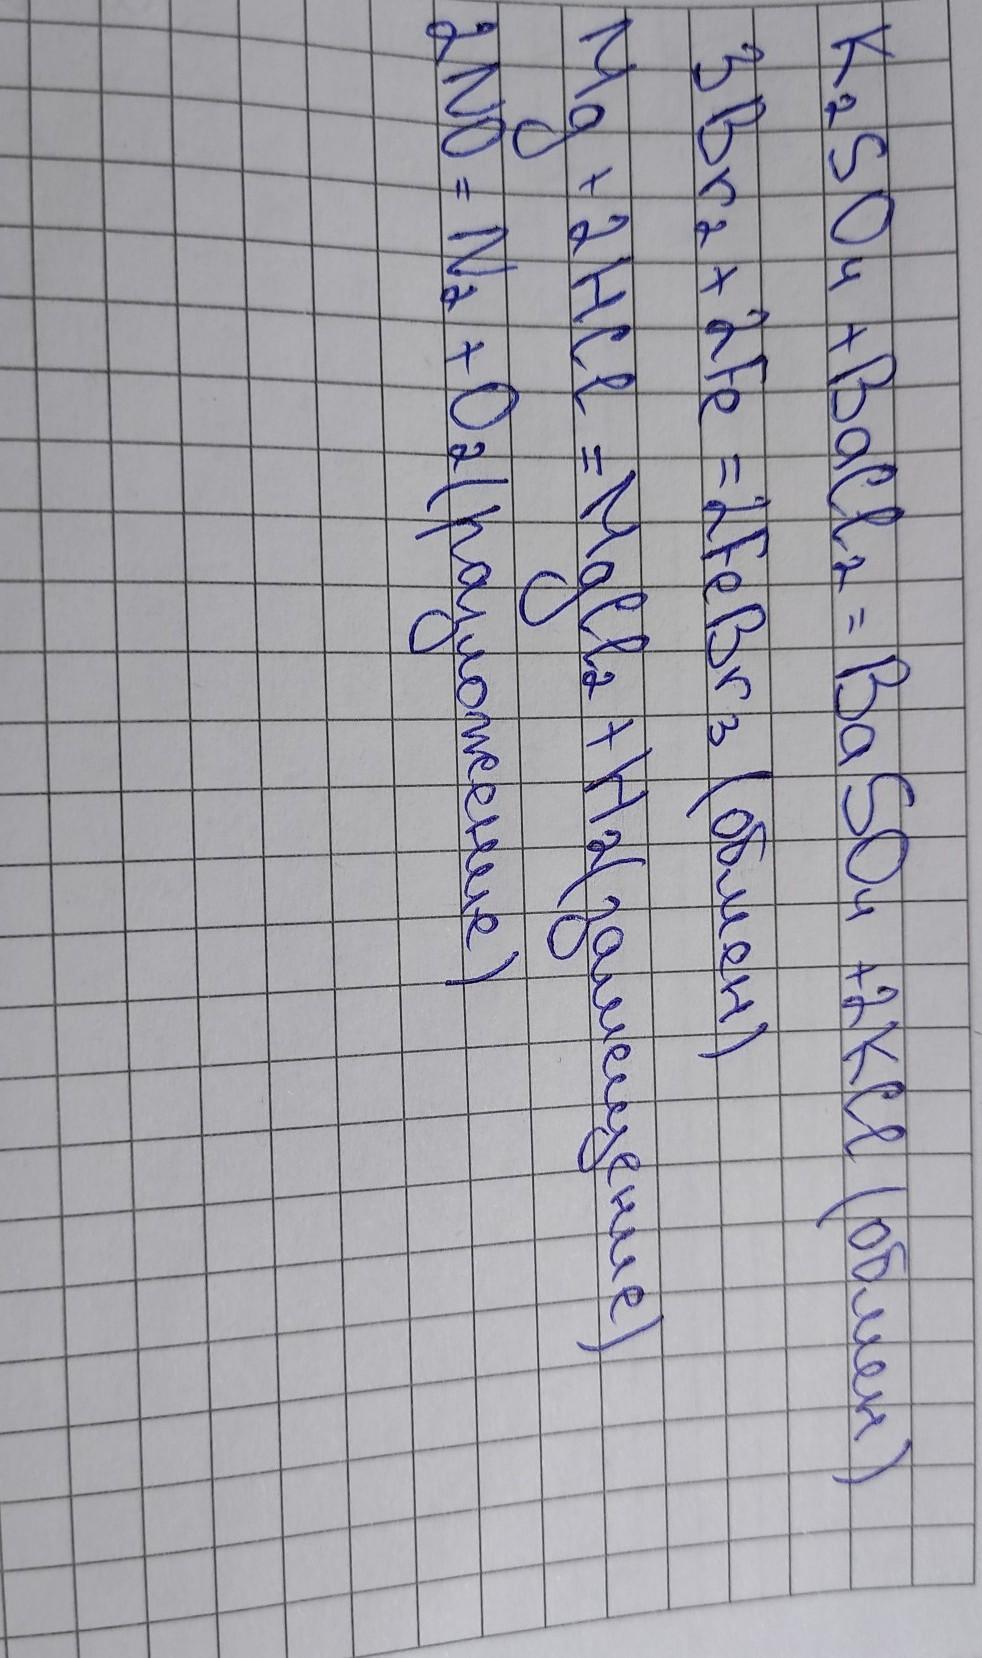 K2SO4 + BaCl2 = BaSO4 + 2KCl (обмен)
3Br2 + 2Fe = 2FeBr3 (обмен)
Mg + 2HCl = MgCl2 + H2 (замещение)
2NO = N2 + O2 (разложение)